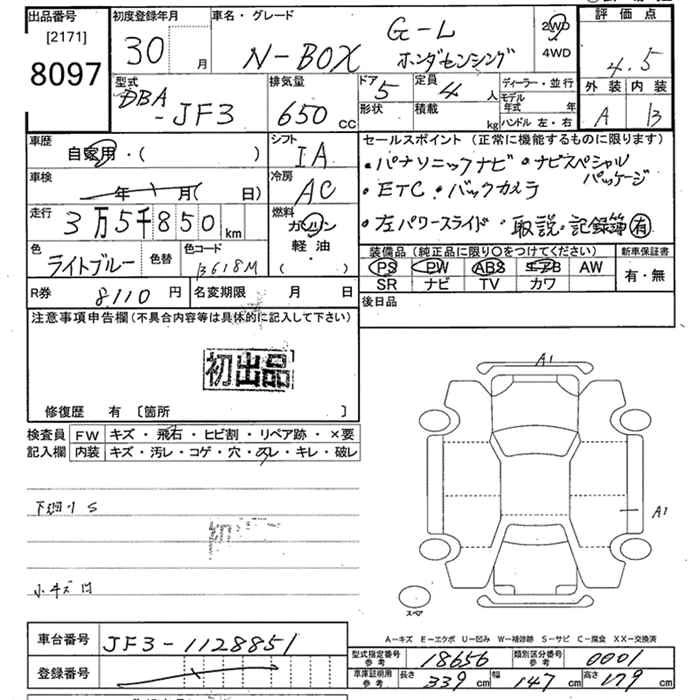 出品番号
[2171]
8097
初度登録年月
30 月
車名・グレード
G-L
N-BOX ホンダセンシング
2WD
4WD
評価点
4.5
外装 内装
A B
型式
DBA
-JF3
排気量
650 cc
ドア 5
形状
定員 4 人
積載 kg
ディーラー・並行
モデル年式 年
ハンドル 左・右
車歴
自家用・( )
シフト
IA
車検
年 月( 日)
冷房
AC
走行
3万5千850 km
燃料
ガソリン
軽油
( )
色
ライトブルー
色替
色コード
B618M
R券 8110 円
名変期限 月 日
セールスポイント(正常に機能するものに限ります)
・パナソニックナビ・ナビスペシャル
パッケージ
・ETC・バックカメラ
・左パワースライド・取説・記録簿 有
装備品(純正品に限り○をつけてください)
PS PW ABS エアB AW
SR ナビ TV カワ
新車保証書
有・無
後日品
注意事項申告欄(不具合内容等は具体的に記入して下さい)
初出品
修復歴 有 〔箇所 〕
検査員 FW キズ・飛石・ヒビ割・リペア跡・×要
記入欄 内装 キズ・汚レ・コゲ・穴・スレ・キレ・破レ
下廻り S
小キズ凹
A1
A1
スペア
A-キズ E-エクボ U-凹み W-補修跡 S-サビ C-腐食 XX-交換済
車台番号 JF3-1128851
登録番号
型式指定番号 参考 18656
類別区分番号 参考 0001
車庫証明用 参考 長さ 339 cm 幅 147 cm 高さ 179 cm